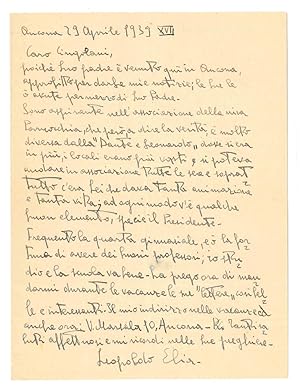 Ancona 29 Aprile 1939 XVII
Caro Cingolani,
poichè Suo padre è venuto qui in Ancona,
approfitto per darle mie notizie; le Sue le
ò avute per mezzo di Suo Padre.
Sono aspirante nell'associazione della mia
Parrocchia, che però, a dir la verità, è molto
diversa dalla "Dante e Leonardo", dove si era
in più, i locali erano più vasti e si poteva
andare in associazione tutte le sere e soprat
tutto c'era Lei che dava tanta animazione
e tanta vita; ad ogni modo v'è qualche
buon elemento, specie il Presidente.
Frequento la quarta ginnasiale, e ò la for
tuna di avere dei buoni professori; io stu
dio e la scuola va bene. La prego ora di man
darmi durante le vacanze le sue lettere, così bel
le e interessanti. Il mio indirizzo nelle vacanze è
anche ora: V. Marsala 10, Ancona. Le tanti sa
luti affettuosi e mi ricordi nelle Sue preghiere.
Leopoldo Elia